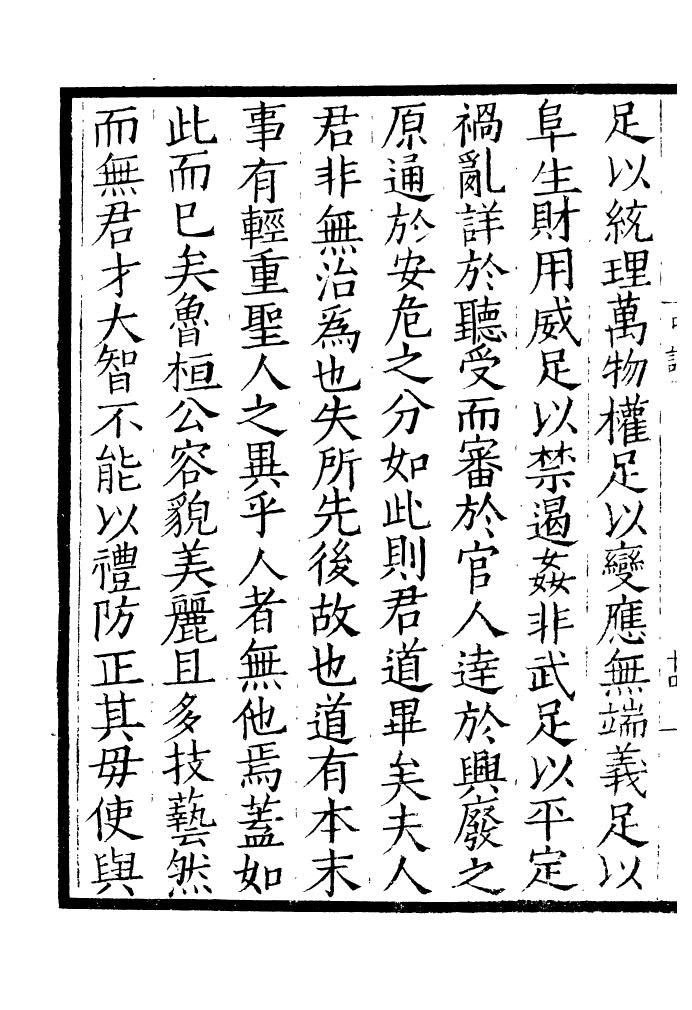 足以統理萬物權足以變應無端義足以
阜生財用威足以禁遏姦非武足以平定
禍亂詳於聽受而審於官人達於興廢之
原通於安危之分如此則君道畢矣夫人
君非無治為也失所先後故也道有本末
事有輕重聖人之異乎人者無他焉蓋如
此而已矣魯桓公容貌美麗且多技藝然
而無君才大智不能以禮防正其母使與